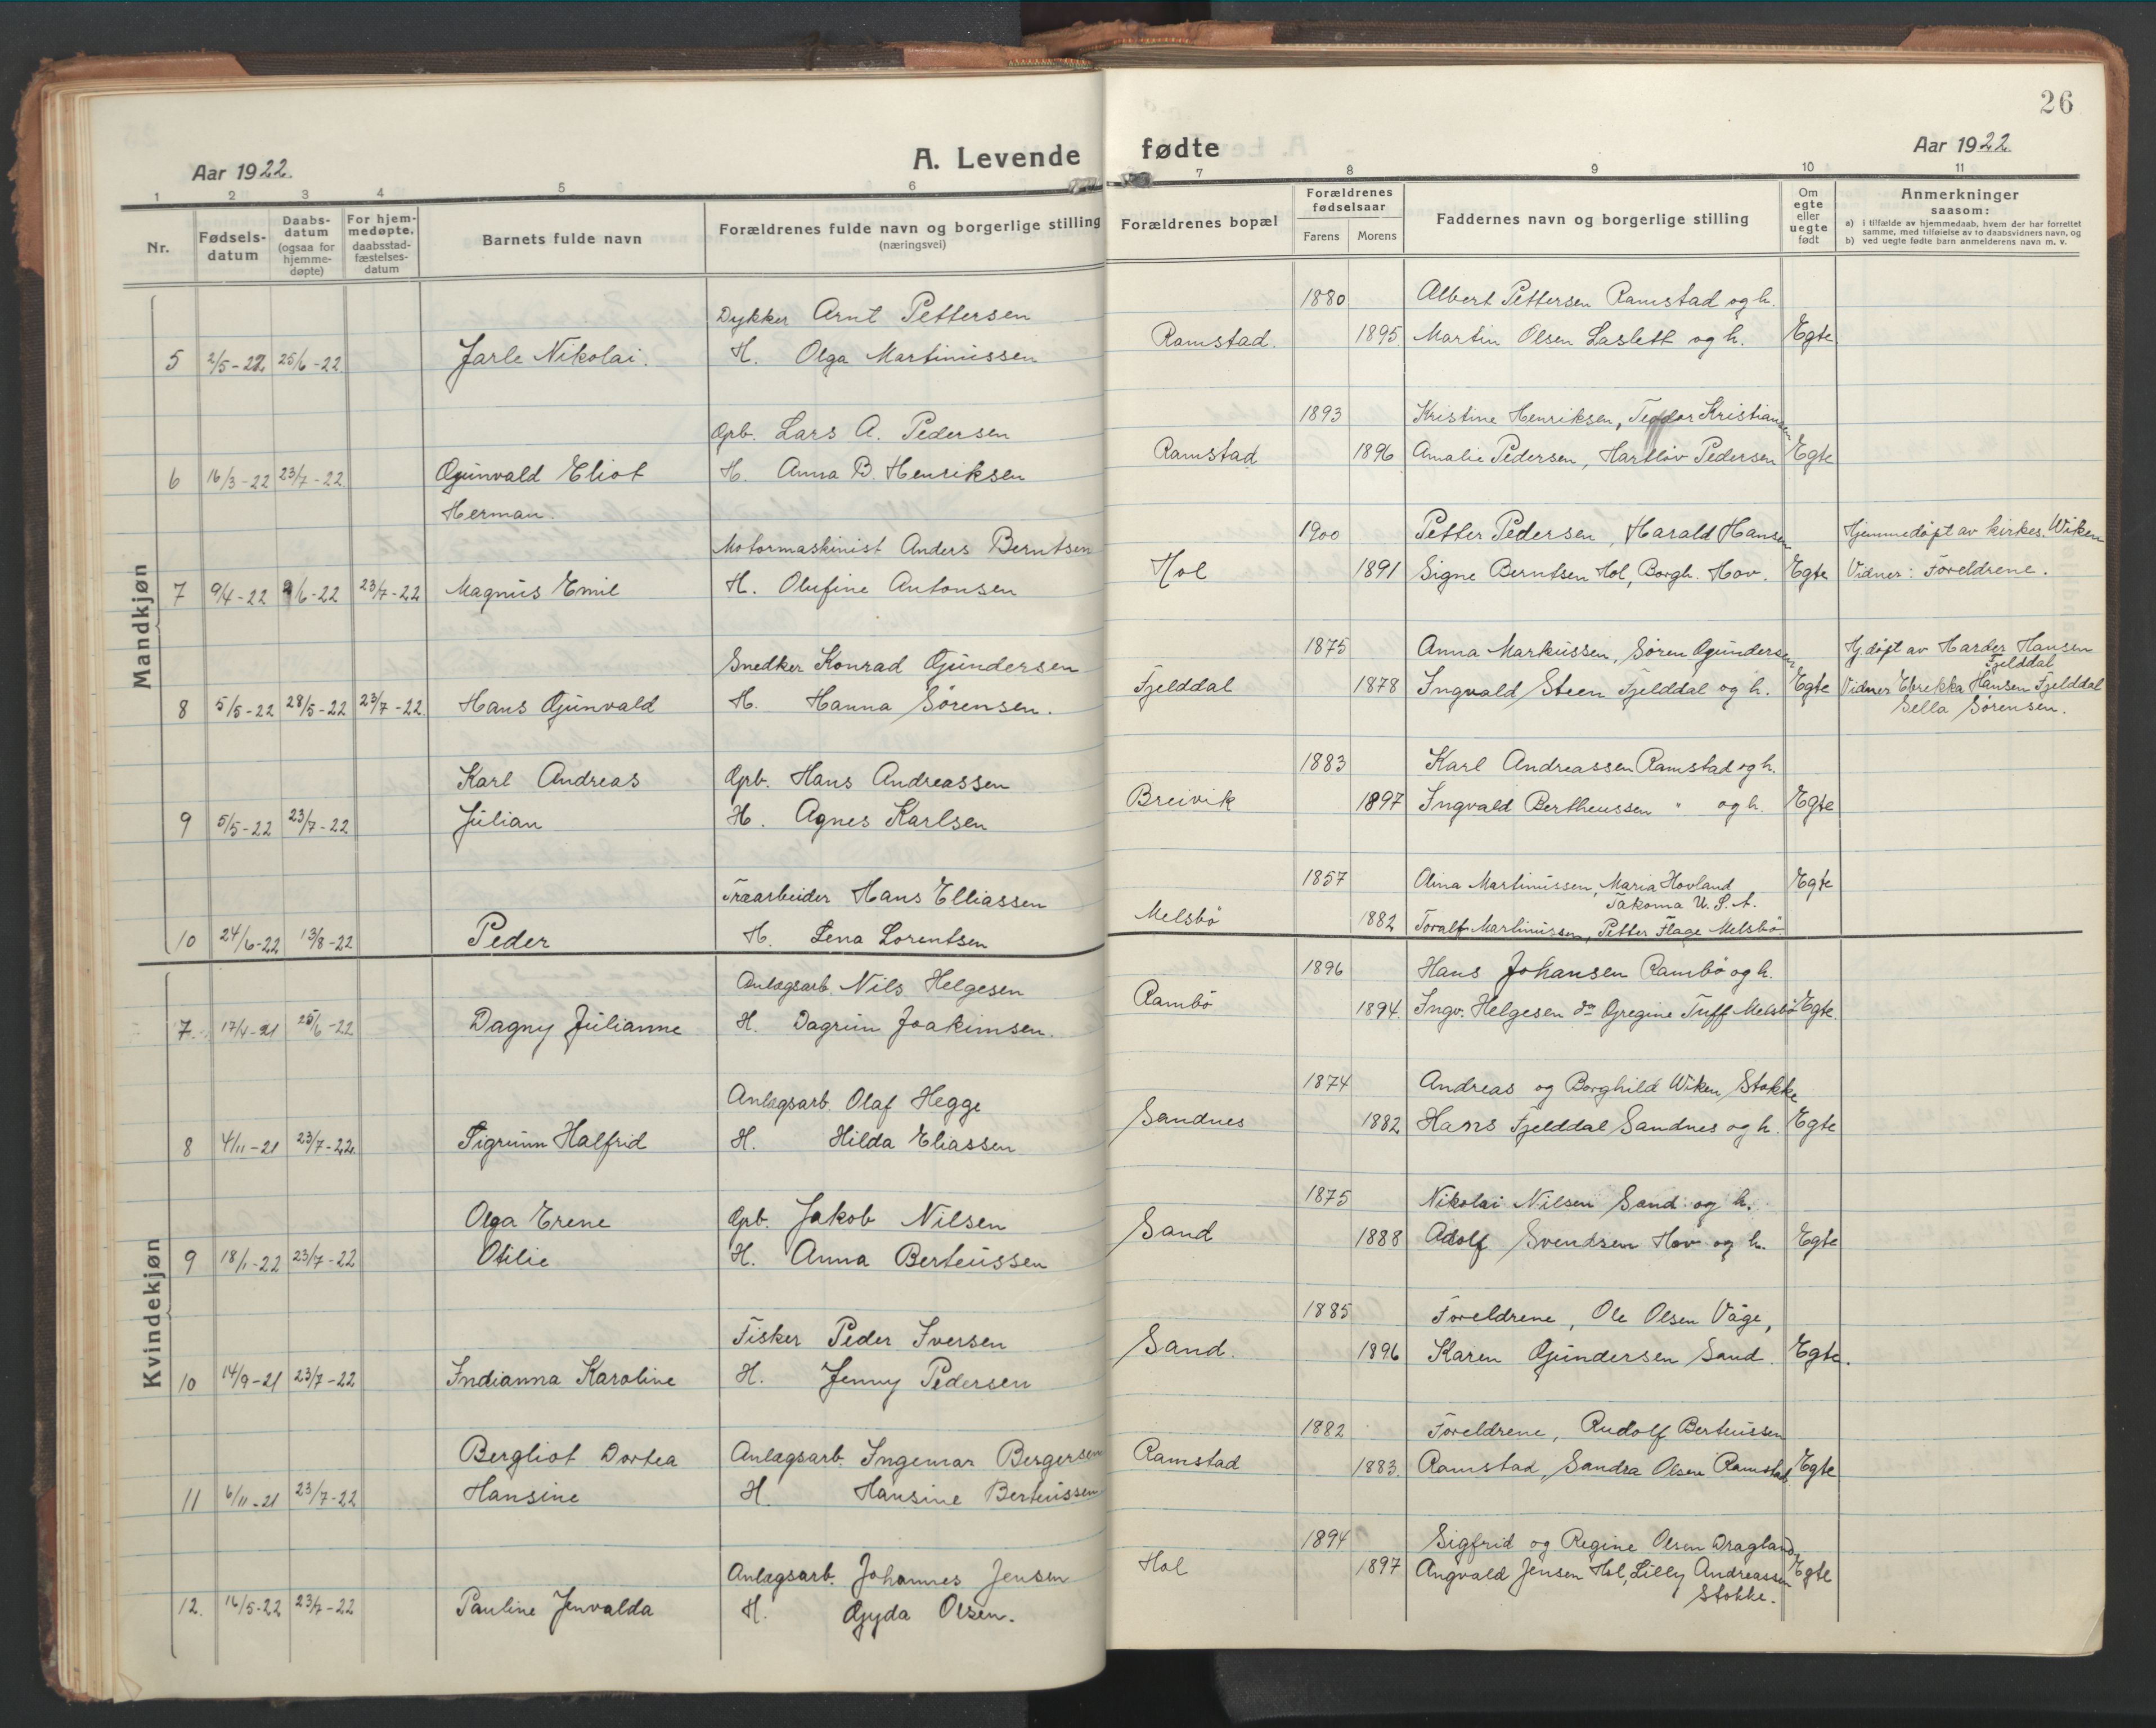 26
Aar 1922.
A. Levende fødte
Aar 1922.
1 2 3 4 5 6 7 8 9 10 11
Nr.
Fødsels-
datum
Daabs-
datum
(ogsaa for
hjemme-
døpte)
For hjem-
medøpte.
daabsstad-
fæstelses-
datum
Barnets fulde navn
Forældrenes fulde navn og borgerlige stilling
(næringsvei)
Forældrenes bopæl
Forældrenes
fødselsaar
Farens Morens
Faddernes navn og borgerlige stilling
Om
egte
eller
uegte
født
Anmerkninger
saasom:
a) i tilfælde av hjemmedaab, hvem der har forrettet
samme, med tilføielse av to daabsvidners navn, og
b) ved uegte fødte barn anmelderens navn m. v.
Mandkjøn
Dykker Arnt Pettersen 1880 Albert Pettersen Ramstad og h.
5 2/5-22 25/6-22 Jarle Nikolai. H. Olga Martinussen Ramstad. 1895 Martin Olsen Laslett og h. Egte
Gpb. Lars A. Pedersen 1893 Kristine Henriksen, Teodor Kristiansen
6 16/3-22 23/7-22 Gunvald Eliot H. Anna B. Henriksen Ramstad 1896 Amalie Pedersen, Hartløv Pedersen Egte
Herman.
Motormaskinist Anders Berntsen 1900 Petter Pedersen, Harald Hansen Hjemmedøpt av kirkes. Wiken
7 9/4-22 /6-22 23/7-22 Magnus Emil H. Olufine Antonsen Hol 1891 Signe Berntsen Hol, Borgh. Hov. Egte Vidner: Foreldrene.
Snedker Konrad Gundersen 1875 Anna Markussen, Søren Gundersen Hj.døpt av Harder Hansen
Fjelddal
8 5/5-22 28/5-22 23/7-22. Hans Gunvald H. Hanna Sørensen. Fjelddal 1878 Ingvald Steen Fjelddal og h. Egte Vidner Ebrekka Hansen Fjelddal
Sella Sørensen.
Karl Andreas Gpb. Hans Andreassen 1883 Karl Andreassen Ramstad og h.
9 5/5-22 23/7-22 Julian H. Agnes Karlsen Breivik 1897 Ingvald Bertheussen " og h. Egte
Træarbeider Hans Elliassen 1857 Olina Martinussen, Maria Hovland Egte
Takoma U. S. A.
10 24/6-22 13/8-22 Peder H. Lena Lorentsen Melsbø 1882 Toralf Martinussen, Petter Flage Melsbø.
Kvindekjøn
Anlægsarb. Nils Helgesen 1896 Hans Johansen Rambø og h.
7. 17/4-21 25/6-22 Dagny Julianne H. Dagrun Joakimsen. Rambø 1894. Ingv. Helgesen do Gregine Tuff Melsbø Egte.
Anlægsarb. Olaf Hegge 1874 Andreas og Borghild Wiken Stokke
8 4/11-21 23/7-22. Sigrunn Halfrid H. Hilda Eliassen Sandnes 1882 Hans Fjelddal Sandnes og h. Egte
Olga Erene Gpb. Jakob Nilsen 1875 Nikolai Nilsen Sand og h.
9 18/1-22 23/7-22 Otilie H. Anna Berteussen Sand 1888 Adolf Svendsen Hov og h. Egte
Fisker Peder Iversen 1885 Foreldrene, Ole Olsen Våge,
10 14/9-21 23/7-22 Indianna Karoline H. Jenny Pedersen Sand. 1896 Karen Gundersen Sand. Egte.
Bergliot Dortea Anlægsarb. Ingemar Bergersen 1882 Foreldrene, Rudolf Berteussen
11 6/11-21 23/7-22 Hansine H. Hansine Berteussen Ramstad 1883. Ramstad, Sandra Olsen Ramstad Egte
Anlægsarb. Johannes Jensen 1894 Sigfrid og Regine Olsen Dragland,
12. 16/5-22 23/7-22 Pauline Jenvalda H. Gyda Olsen. Hol 1897 Angvald Jensen Hol, Lilly Andreassen Egte
Stokke.